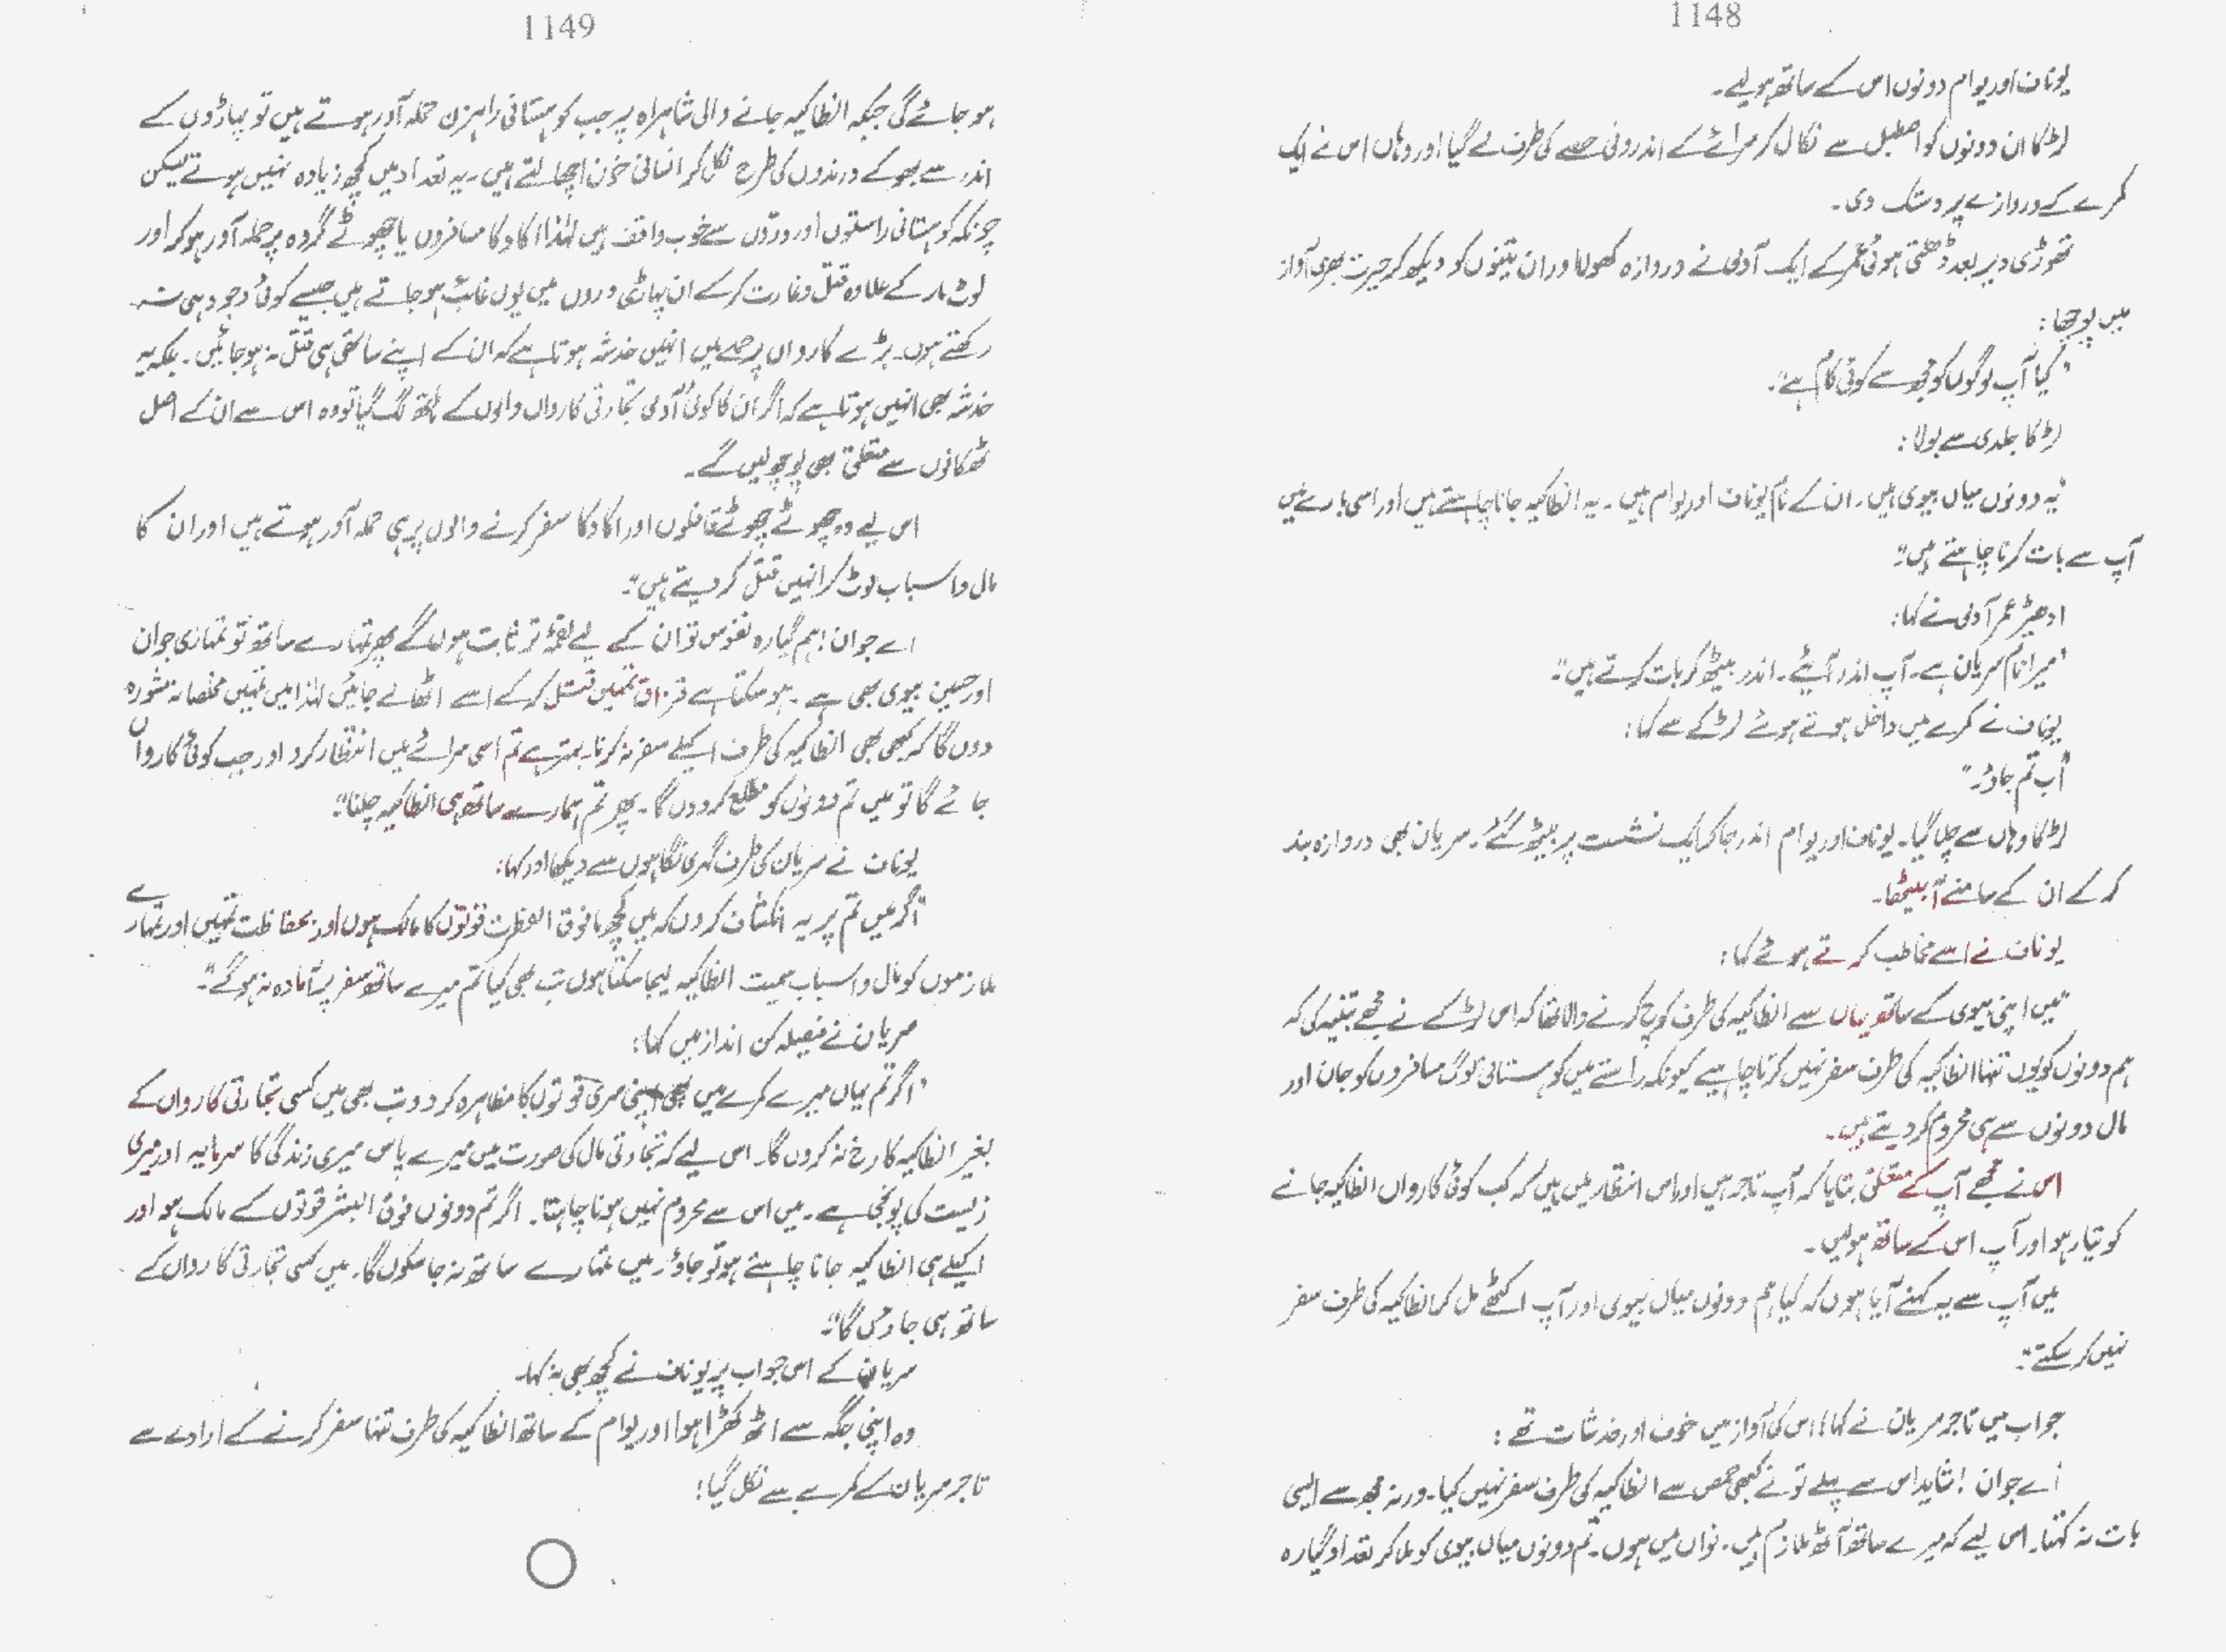 1148
یوناف اور یوام دونوں اس کے ساتھ ہو لیے۔
لڑکا ان دونوں کو اصطبل سے نکال کر سرائے کے اندرونی حصے کی طرف لے گیا اور وہاں اس نے ایک
کمرے کے دروازے پر دستک دی۔
تھوڑی دیر بعد ڈھلتی ہوئی عمر کے ایک آدمی نے دروازہ کھولا اور ان تینوں کو دیکھ کر حیرت بھری آواز
میں پوچھا:
"کیا آپ لوگوں کو مجھ سے کوئی کام ہے"۔
لڑکا جلدی سے بولا:
"یہ دونوں میاں بیوی ہیں۔ ان کے نام یوناف اور یوام ہیں۔ یہ انطاکیہ جانا چاہتے ہیں اور اسی بارے میں
آپ سے بات کرنا چاہتے ہیں"۔
ادھیڑ عمر آدمی نے کہا:
"میرا نام سریان ہے۔ آپ اندر آیئے۔ اندر بیٹھ کر بات کرتے ہیں"۔
یوناف نے کمرے میں داخل ہوتے ہوئے لڑکے سے کہا:
"اب تم جاؤ۔"
لڑکا وہاں سے چلا گیا۔ یوناف اور یوام اندر جا کر ایک نشست پر بیٹھ گئے۔ سریان بھی دروازہ بند
کر کے ان کے سامنے آ بیٹھا۔
یوناف نے اسے مخاطب کرتے ہوئے کہا:
"میں اپنی بیوی کے ساتھ یہاں سے انطاکیہ کی طرف کوچ کرنے والا تھا کہ اس لڑکے نے مجھے تنبیہہ کی کہ
ہم دونوں کو یوں تنہا انطاکیہ کی طرف سفر نہیں کرنا چاہیے کیونکہ راستے میں کوہستانی لوگ مسافروں کو جان اور
مال دونوں سے ہی محروم کر دیتے ہیں۔
اس نے مجھے آپ کے متعلق بتایا کہ آپ تاجر ہیں اور اس انتظار میں ہیں کہ کب کوئی کارواں انطاکیہ جانے
کو تیار ہو اور آپ اس کے ساتھ ہو لیں۔
میں آپ سے یہ کہنے آیا ہوں کہ کیا ہم دونوں میاں بیوی اور آپ اکٹھے مل کر انطاکیہ کی طرف سفر
نہیں کر سکتے"۔
جواب میں تاجر سریان نے کہا! اس کی آواز میں خوف اور خدشات تھے:
"اے جوان! شاید اس سے پہلے تو نے کبھی حمص سے انطاکیہ کی طرف سفر نہیں کیا۔ ورنہ مجھ سے ایسی
بات نہ کہتا۔ اس لیے کہ میرے ساتھ آٹھ ملازم ہیں۔ نواں میں ہوں۔ تم دونوں میاں بیوی کو ملا کر تعداد گیارہ
1149
ہو جائے گی جبکہ انطاکیہ جانے والی شاہراہ پر جب کوہستانی راہزن حملہ آور ہوتے ہیں تو پہاڑوں کے
اندر سے بھوکے درندوں کی طرح نکل کر انسانی خون اچھالتے ہیں۔ یہ تعداد میں کچھ زیادہ نہیں ہوتے لیکن
چونکہ کوہستانی راستوں اور درّوں سے خوب واقف ہیں لہٰذا اکا دکا مسافروں یا چھوٹے گروہ پر حملہ آور ہو کر اور
لوٹ مار کے علاوہ قتل و غارت کر کے ان پہاڑی دروں میں یوں غائب ہو جاتے ہیں جیسے کوئی وجود ہی نہ
رکھتے ہوں۔ بڑے کارواں پر حملے میں انہیں خدشہ ہوتا ہے کہ ان کے اپنے ساتھی ہی قتل نہ ہو جائیں۔ بلکہ یہ
خدشہ بھی انہیں ہوتا ہے کہ اگر ان کا کوئی آدمی تجارتی کارواں والوں کے ہاتھ لگ گیا تو وہ اس سے ان کے اصل
ٹھکانوں سے متعلق بھی پوچھ لیں گے۔
اس لیے وہ چھوٹے چھوٹے قافلوں اور اکا دکا سفر کرنے والوں پر ہی حملہ آور ہوتے ہیں اور ان کا
مال و اسباب لوٹ کر انہیں قتل کر دیتے ہیں"۔
اے جوان! ہم گیارہ نفوس تو ان کے لیے لقمۂ تر ثابت ہوں گے پھر تمہارے ساتھ تو تمہاری جوان
اور حسین بیوی بھی ہے۔ ہو سکتا ہے قزاق تمہیں قتل کر کے اسے اٹھا لے جائیں لہٰذا میں تمہیں مخلصانہ مشورہ
دوں گا کہ کبھی بھی انطاکیہ کی طرف اکیلے سفر نہ کرنا۔ بہتر ہے تم اسی سرائے میں انتظار کرو اور جب کوئی کارواں
جائے گا تو میں تم دونوں کو مطلع کر دوں گا۔ پھر تم ہمارے ساتھ ہی انطاکیہ چلنا"۔
یوناف نے سریان کی طرف گہری نگاہوں سے دیکھا اور کہا:
"اگر میں تم پر یہ انکشاف کروں کہ میں کچھ مافوق الفطرت قوتوں کا مالک ہوں اور بحفاظت تمہیں اور تمہارے
ملازموں کو مال و اسباب سمیت انطاکیہ لیجا سکتا ہوں تب بھی کیا تم میرے ساتھ سفر پر آمادہ نہ ہو گے"۔
سریان نے فیصلہ کن انداز میں کہا:
"اگر تم یہاں میرے کمرے میں بھی اپنی سری قوتوں کا مظاہرہ کر دو تب بھی میں کسی تجارتی کارواں کے
بغیر انطاکیہ کا رخ نہ کروں گا۔ اس لیے کہ تجارتی مال کی صورت میں میرے پاس میری زندگی کا سرمایہ اور میری
زیست کی پونجی ہے۔ میں اس سے محروم نہیں ہونا چاہتا۔ اگر تم دونوں فوق البشر قوتوں کے مالک ہو اور
اکیلے ہی انطاکیہ جانا چاہتے ہو تو جاؤ۔ میں تمہارے ساتھ نہ جا سکوں گا۔ میں کسی تجارتی کارواں کے
ساتھ ہی جاؤں گا"۔
سریان کے اس جواب پر یوناف نے کچھ بھی نہ کہا۔
وہ اپنی جگہ سے اٹھ کھڑا ہوا اور یوام کے ساتھ انطاکیہ کی طرف تنہا سفر کرنے کے ارادے سے
تاجر سریان کے کمرے سے نکل گیا!